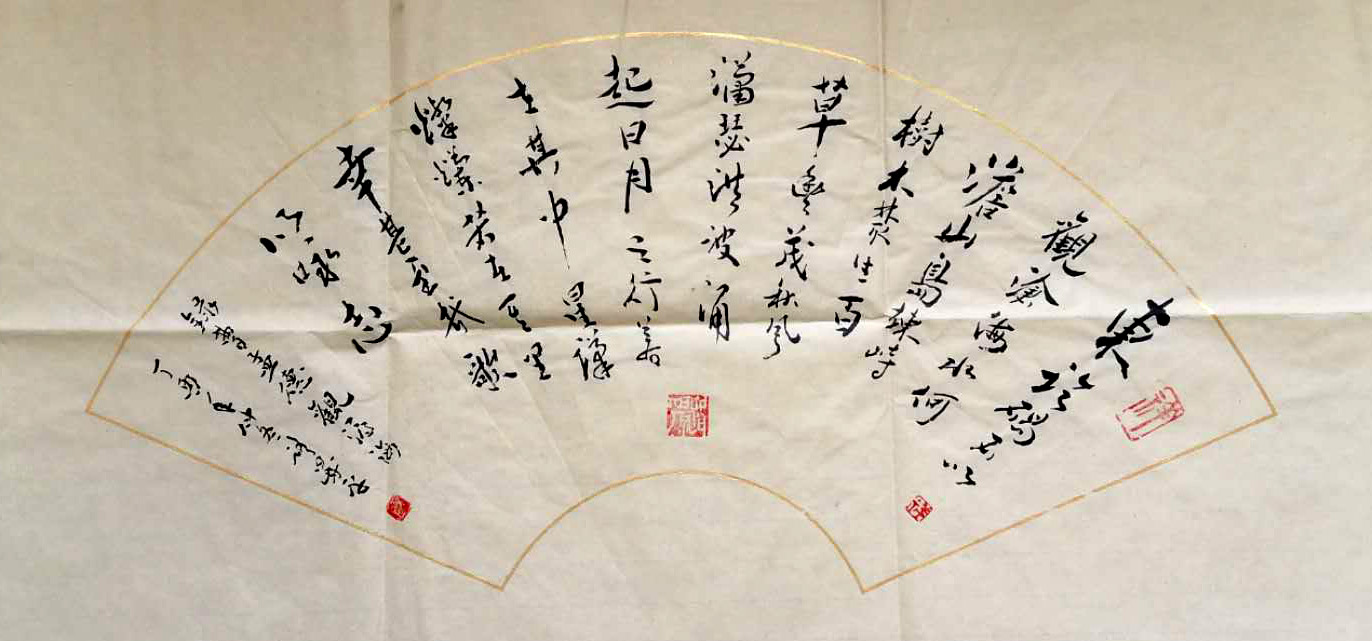 東臨碣石以
觀滄海水何
澹山島竦峙
樹木叢生百
草豐茂秋風
瀟瑟洪波涌
起日月之行若
出其中星漢
燦爛若出其里
幸甚至哉歌
以詠志
錄曹孟德觀滄海
丁酉年